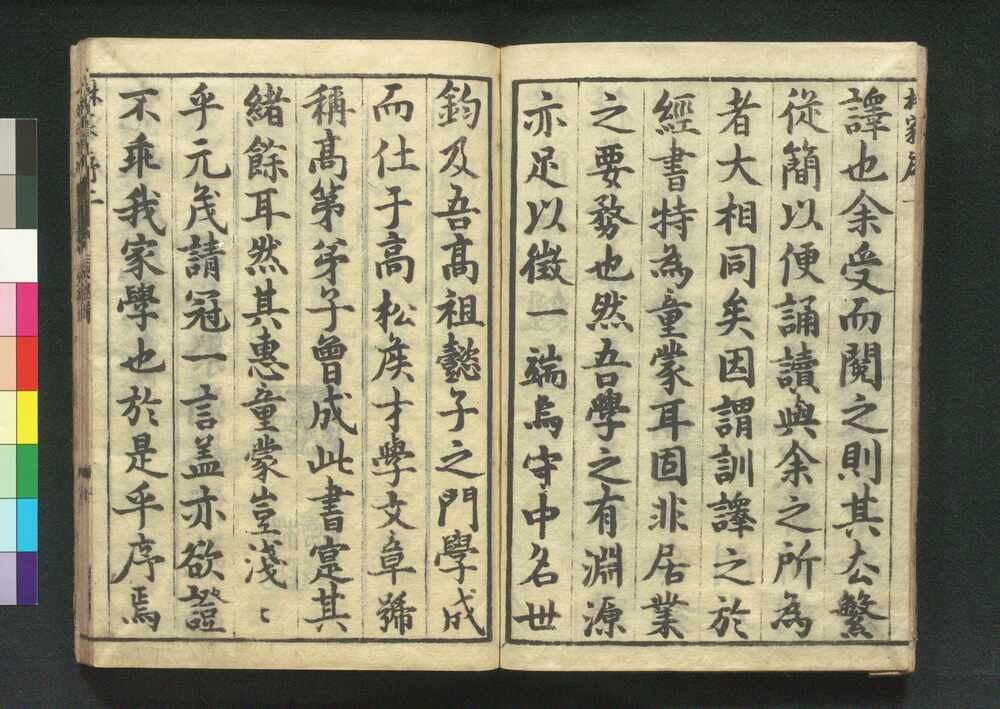 譯也余受而閱之則其去繁
從簡以便誦讀與余之所為
者大相同矣因謂訓譯之於
經書特為童蒙耳固非居業
之要務也然吾學之有淵源
亦足以徵一端焉守中名世
鈞及吾髙祖懿子之門學成
而仕于高松矦才學文章號
稱髙第弟子曾成此書寔其
緒餘耳然其惠童蒙豈淺〻
乎元茂請冠一言盖亦欲證
不乖我家學也於是乎序焉